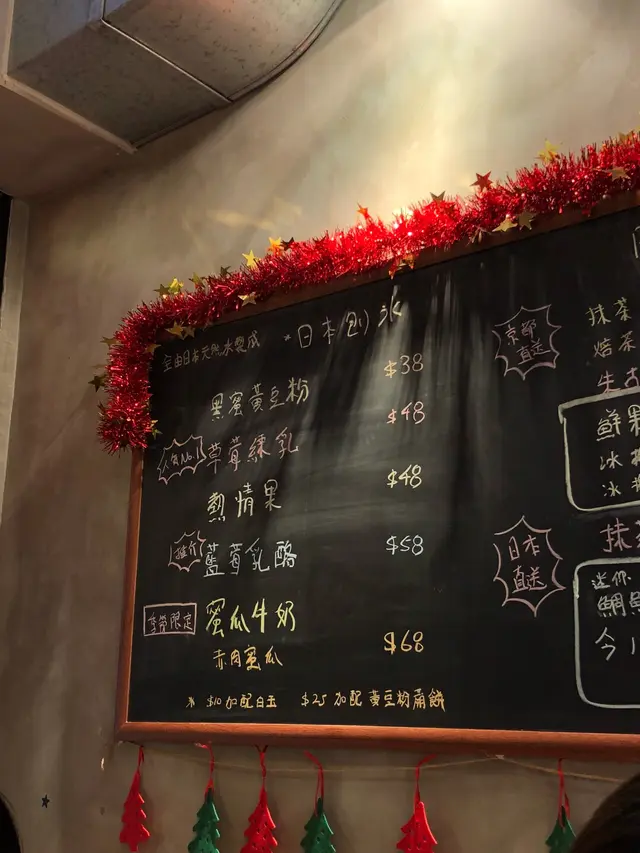 全由日本天然水製成
*日本刨冰
黑蜜黃豆粉 $38
人気No.1 草莓練乳 $48
熱情果 $48
推介 藍莓乳酪 $58
季節限定 蜜瓜牛奶
赤肉蜜瓜 $68
* $10 加配白玉 $25 加配黃豆粉蕨餅
京都直送
抹茶
焙茶
鮮果
冰
冰
日本直送
抹
迷你
鯛魚
今